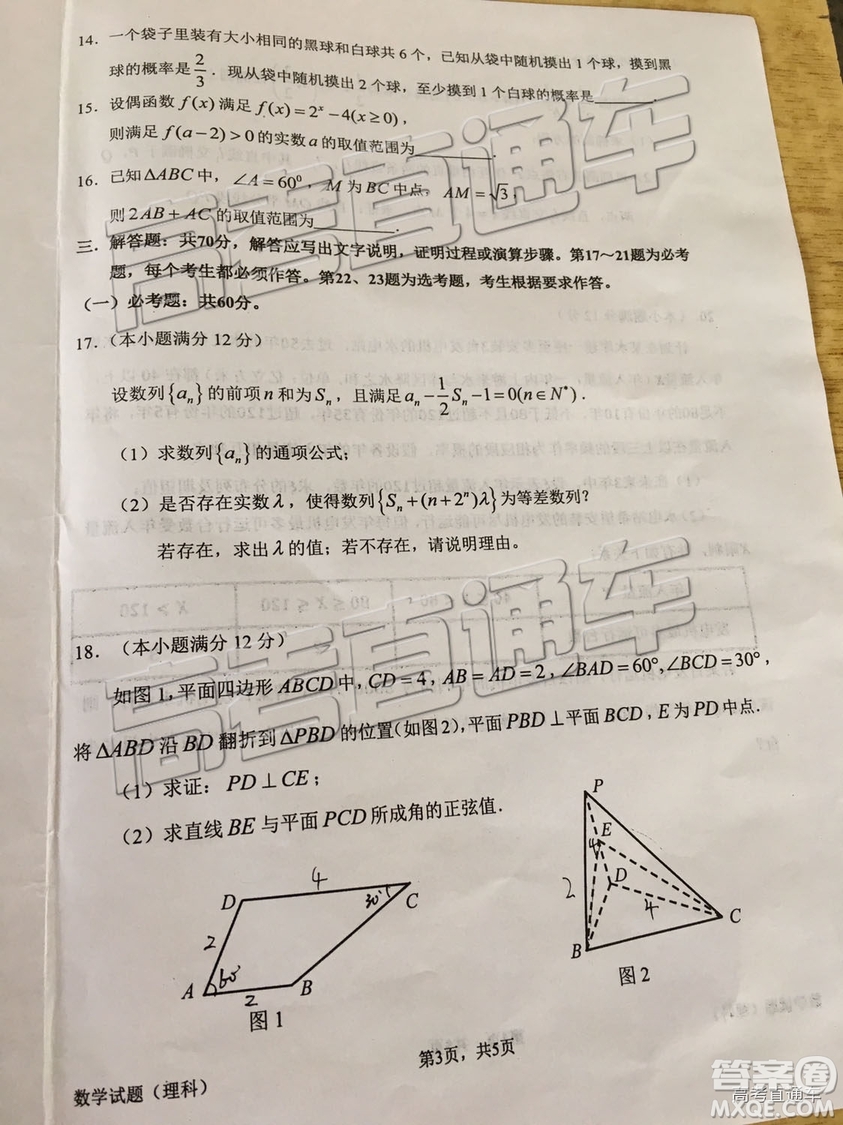 14. 一个袋子里装有大小相同的黑球和白球共6个，已知从袋中随机摸出1个球，摸到黑
球的概率是2/3. 现从袋中随机摸出2个球，至少摸到1个白球的概率是______.
15. 设偶函数f(x)满足f(x)=2^x-4(x≥0)，
则满足f(a-2)>0的实数a的取值范围为______.
16. 已知ΔABC中，∠A=60⁰，M为BC中点，AM=√3，
则2AB+AC的取值范围为______.
三. 解答题：共70分，解答应写出文字说明，证明过程或演算步骤。第17～21题为必考
题，每个考生都必须作答。第22、23题为选考题，考生根据要求作答。
(一) 必考题：共60分。
17. (本小题满分12分)
设数列{a_n}的前项n和为S_n，且满足a_n-1/2 S_n-1=0(n∈N*).
(1) 求数列{a_n}的通项公式；
(2) 是否存在实数λ，使得数列{S_n+(n+2^n)λ}为等差数列？
若存在，求出λ的值；若不存在，请说明理由。
18. (本小题满分12分)
如图1，平面四边形ABCD中，CD=4，AB=AD=2，∠BAD=60°，∠BCD=30°，
将ΔABD沿BD翻折到ΔPBD的位置(如图2)，平面PBD⊥平面BCD，E为PD中点.
(1) 求证：PD⊥CE；
(2) 求直线BE与平面PCD所成角的正弦值.
P
E
D
2
4
C
B
图2
4
D
C
30°
2
A
60°
2
B
图1
第3页，共5页
数学试题（理科）
高考直通车
高考直通车
答案圈
高考直通车
MXQE.COM